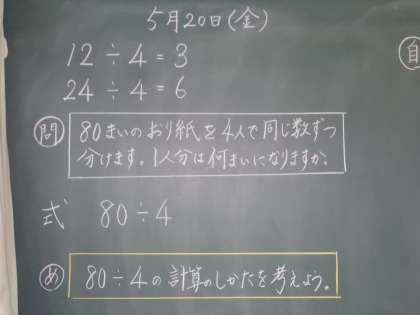 5月20日(金)
12÷4=3
24÷4=6
自
問 80まいのおり紙を4人で同じ数ずつ
分けます。1人分は何まいになりますか。
式 80÷4
め 80÷4の計算のしかたを考えよう。